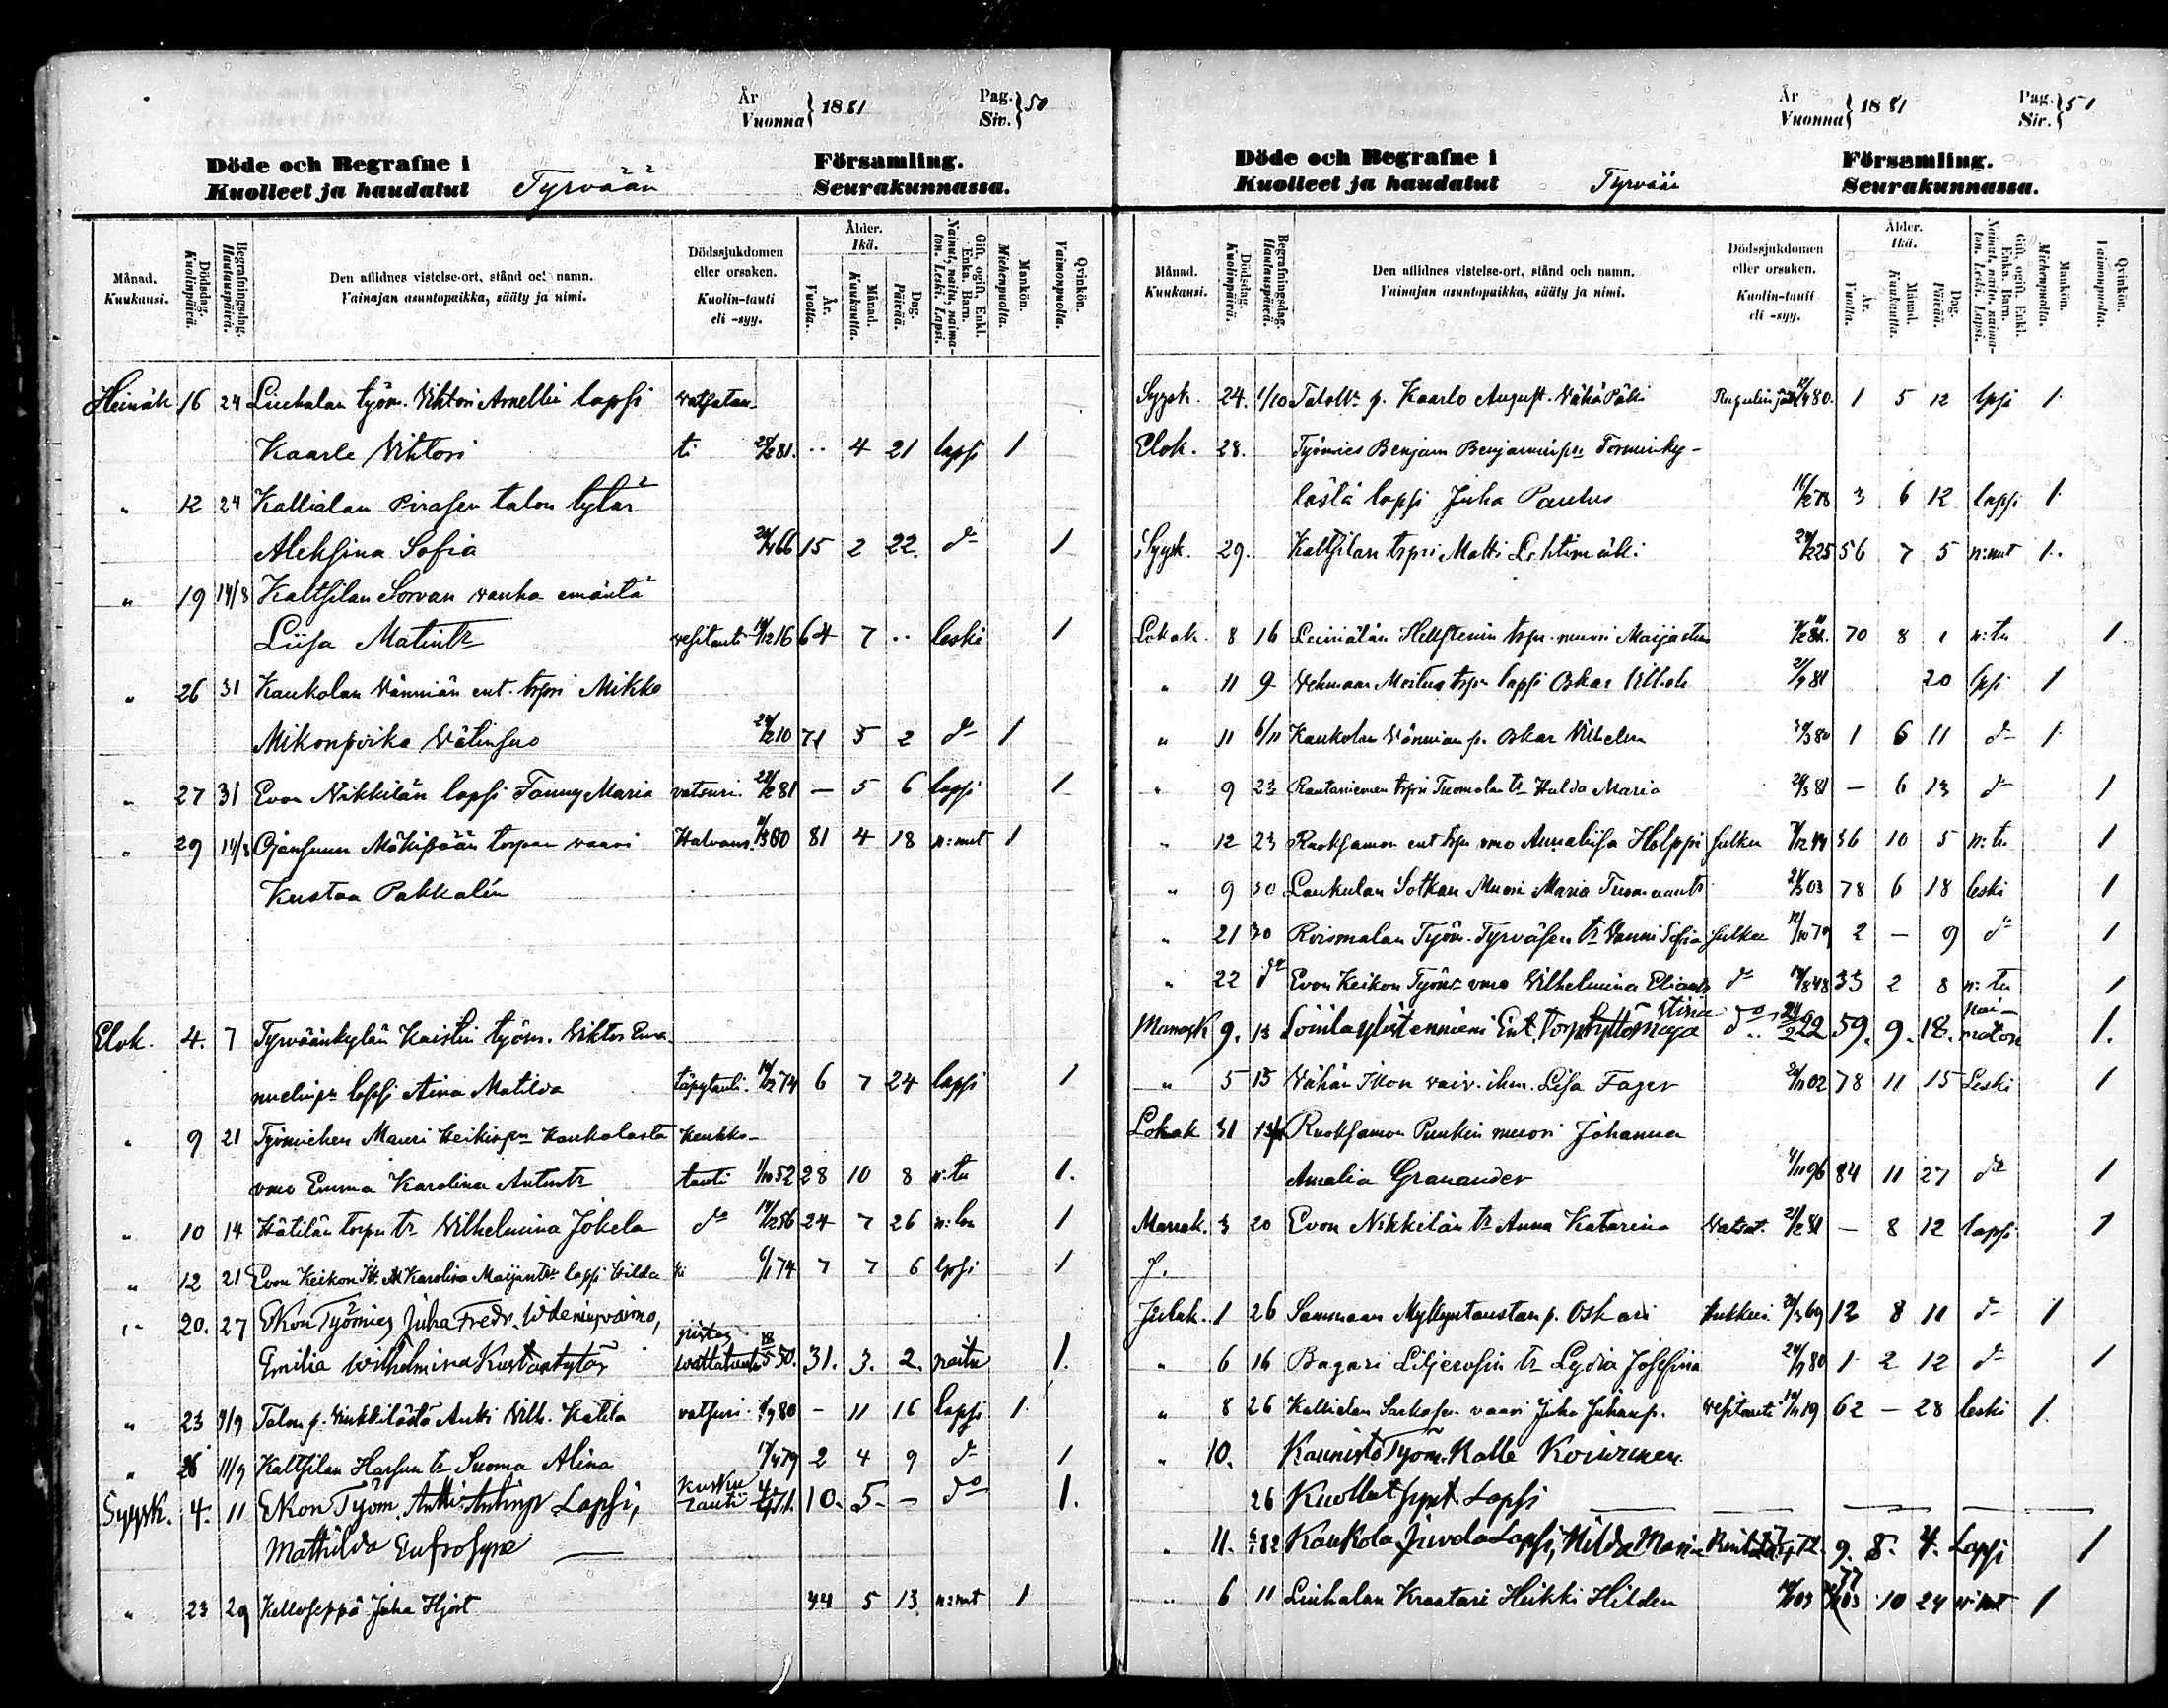 År
Vuonna } 1881 Pag.
Siv. } 50
Döde och Begrafne i Församling.
Kuolleet ja haudatut Tyrvään Seurakunnassa.
Månad. Kuukausi. Dödsdag. Kuolinpäivä. Begrafningsdag. Hautauspäivä. Den aflidnes vistelse-ort, stånd och namn. Vainajan asuntopaikka, sääty ja nimi. Dödssjukdomen eller orsaken. Kuolin-tauti eli -syy. Ålder. Ikä. År. Vuotta. Månad. Kuukautta. Dag. Päivää. Gift, ogift, Enkl. Enka. Barn. Nainut, naitu, naimaton. Leski. Lapsi. Mankön. Miehenpuolta. Qvinkön. Vaimonpuolta.
Heinäk 16 24 Liuhalan työm. Vihtori Arnellin lapsi vatsatau-
Kaarle Vihtori ti 25/2 81. .. 4 21 lapsi 1
" 12 24 Kallialan Pirasen talon tytär
Aleksina Sofia 66 15 2 22. do 1
" 19 14/8 Kaltsilan Sorvan vanha emäntä
Liisa Matintr vesitauti 19/12 16 64 7 .. leski 1
" 26 31 Kaukolan Vänniän ent. torpri Mikko
Mikonpoika Välinsuo 24/2 10 71 5 2 do 1
" 27 31 Evon Nikkilän lapsi Fanny Maria vatsuri. 21/2 81 — 5 6 lapsi 1
" 29 14/8 Ojansuun Mäkipään torpan vaari Halvaus. 11/3 00 81 4 18 n:mut 1
Kustaa Pakkalén
Elok. 4. 7 Tyrväänkylän Kaistin työm. Viktor Ema-
nuelinpn lapsi Aina Matilda täpytauti. 10/12 74 6 7 24 lapsi 1
" 9 21 Työmiehen Mauri Heikinpn Kaukolasta keuhko-
vmo Emma Karolina Antintr tauti 1/10 52 28 10 8 n:tu 1.
" 10 14 Hätilän torpn tr Vilhelmina Jokela do 14/12 56 24 7 26 n:ton 1
" 12 21 Evon Keikon Itt. Karolina Maijantr lapsi Hilda 6/1 74 7 7 6 lapsi 1
" 20. 27 Ekon Työmies Juha Fredr. Videninp vaimo,
Emilia Wilhelmina Kustantytär pistos wattatauti 18/5 50. 31. 3. 2. naitu 1.
" 23 4/9 Talon p. Vinkkilästä Antti Vilh. Kätilä vatsuri. 7/9 80 — 11 16 lapsi 1
" 26 11/9 Kaltsilan Harsun tr Suoma Alina 17/4 79 2 4 9 do 1
Syysk. 4. 11 Ekon Työm. Antti Antinp Lapsi, Kurkku tauti 4/4 71. 10. 5. — do 1.
Mathilda Eufrosyne —
" 23 29 Kelloseppä Juha Hjort 44 5 13 n:mut 1
År
Vuonna } 1881 Pag.
Siv. } 51
Döde och Begrafne i Församling.
Kuolleet ja haudatut Tyrvään Seurakunnassa.
Månad. Kuukausi. Dödsdag. Kuolinpäivä. Begrafningsdag. Hautauspäivä. Den aflidnes vistelse-ort, stånd och namn. Vainajan asuntopaikka, sääty ja nimi. Dödssjukdomen eller orsaken. Kuolin-tauti eli -syy. Ålder. Ikä. År. Vuotta. Månad. Kuukautta. Dag. Päivää. Gift, ogift, Enkl. Enka. Barn. Nainut, naitu, naimaton. Leski. Lapsi. Mankön. Miehenpuolta. Qvinkön. Vaimonpuolta.
Syysk. 24. 1/10 p. Kaarlo August. Vähä Päki 12/4 80. 1 5 12 lpsi 1
Elok. 28. Työmies Benjam Benjaminpn Torminky-
lästä lapsi Juha Paulus 16/2 78 3 6 12 lapsi 1
Syysk. 29. Kaltsilan torpri Matti Lehtimäki 24/2 25 56 7 5 n:mut 1.
Lokak. 8 16 Leiniälän Hellstenin torpn muori Maijastina 70 8 1 n:tu 1.
" 11 9 Vehmaan Moitus torpn lapsi Oskar Vilh. 21/9 81 20 lpsi 1
" 11 6/11 Kaukolan Vännian p. Oskar Vilhelm 30/3 80 1 6 11 do 1
" 9 23 Rautaniemen torpri Tuomolan tr Hulda Maria 26/3 81 — 6 13 do 1
" 12 23 Ruoksamon ent torpn vmo Annaliisa Holppi sulku 7/12 44 36 10 5 n:tu 1
" 9 30 Laukulan Sotkan Muori Maria Tuomaantr 21/3 03 78 6 18 leski 1
" 21 30 Roismalan Työm. Tyrväsen tr Vanni Sofia sulku 12/10 79 2 — 9 do 1
" 22 do Evon Keikon Työmn vmo Vilhelmina Eliantr do 14/8 48 33 2 8 n:tu 1
Marrask 9. 13 Ent. Torp tyttö Maja stina do 24/2 22 59. 9. 18. nai-maton 1.
" 5 13 Vähän Ikon vaiv. ihm. Lisa Fager 20/11 02 78 11 15 Leski 1
Lokak 31 13/11 Ruoksamon Punkin muori Johanna
Amalia Granander 4/11 96 84 11 27 do 1
Marrak. 3 20 Evon Nikkilän tr Anna Katarina Vatsat. 21/2 81 — 8 12 lapsi 1
J.
Joulak. 1 26 Sammaan Myllyntaustan p. Oskari Hukkui 20/3 69 12 8 11 do 1
" 6 16 Bagari Liljerosin tr Lydia Josefina 24/9 80 1 2 12 do 1
" 8 26 Kallialan Sarkasen vaari Juha Juhanp. vesitauti 10/11 19 62 — 28 leski 1
" 10. Kaunisto Työm. Kalle Koivunen
26 Kuollut synt. Lapsi — — — —
" 11. 6/1 82 Kaukola Juvela Lapsi, Hilda Maria 72. 9. 8. 4. Lapsi 1
" 6 11 Liuhalan Kraatari Heikki Hilden 03 77 10 24 n:mut 1